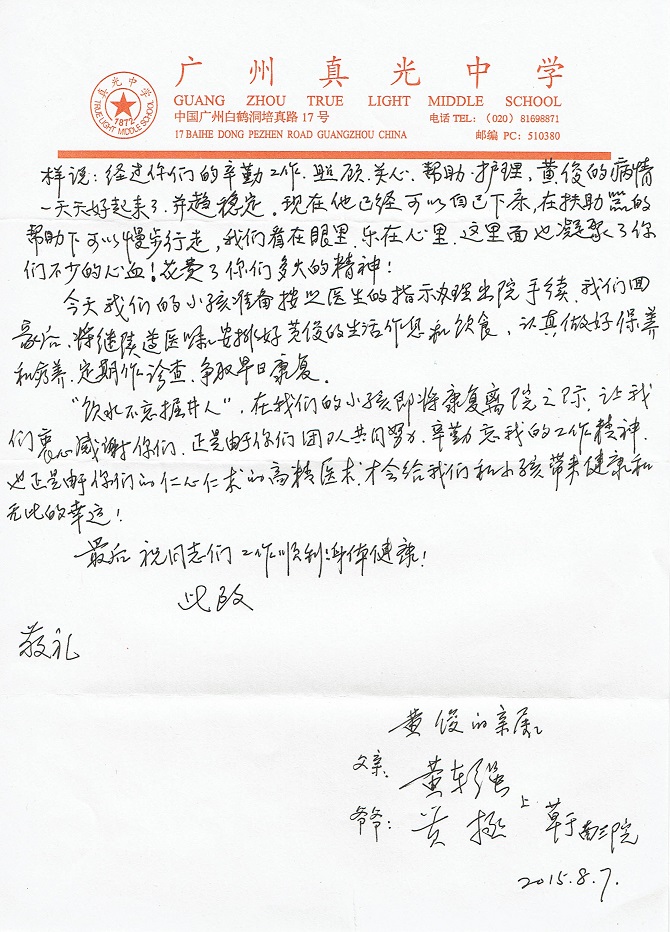 广州真光中学
GUANG ZHOU TRUE LIGHT MIDDLE SCHOOL
中国广州白鹤洞培真路17号 电话TEL:（020）81698871
17 BAIHE DONG PEZHEN ROAD GUANGZHOU CHINA 邮编 PC: 510380
真光中学
1872
TRUE LIGHT MIDDLE SCHOOL
样说：经过你们的辛勤工作、照顾、关心、帮助、护理，黄俊的病情
一天天好起来了，并趋稳定。现在他已经可以自己下床，在扶助器的
帮助下可以慢步行走，我们看在眼里、乐在心里、这里面也凝聚了你
们不少的心血！花费了你们多大的精神！
今天我们的小孩准备按照医生的指示办理出院手续，我们回
家后，将继续遵医嘱安排好黄俊的生活作息和饮食，认真做好保养
和疗养、定期作诊查、争取早日康复。
"饮水不忘掘井人"，在我们的小孩即将康复离院之际，让我
们衷心感谢你们，正是由于你们团队共同努力、辛勤忘我的工作精神，
也正是由于你们的仁心仁术的高精医术，才会给我们和小孩带来健康和
无比的幸运！
最后祝同志们工作顺利！身体健康！
此致
敬礼
黄俊的亲属
父亲：黄
爷爷：黄 上 草于南三院
2015.8.7.